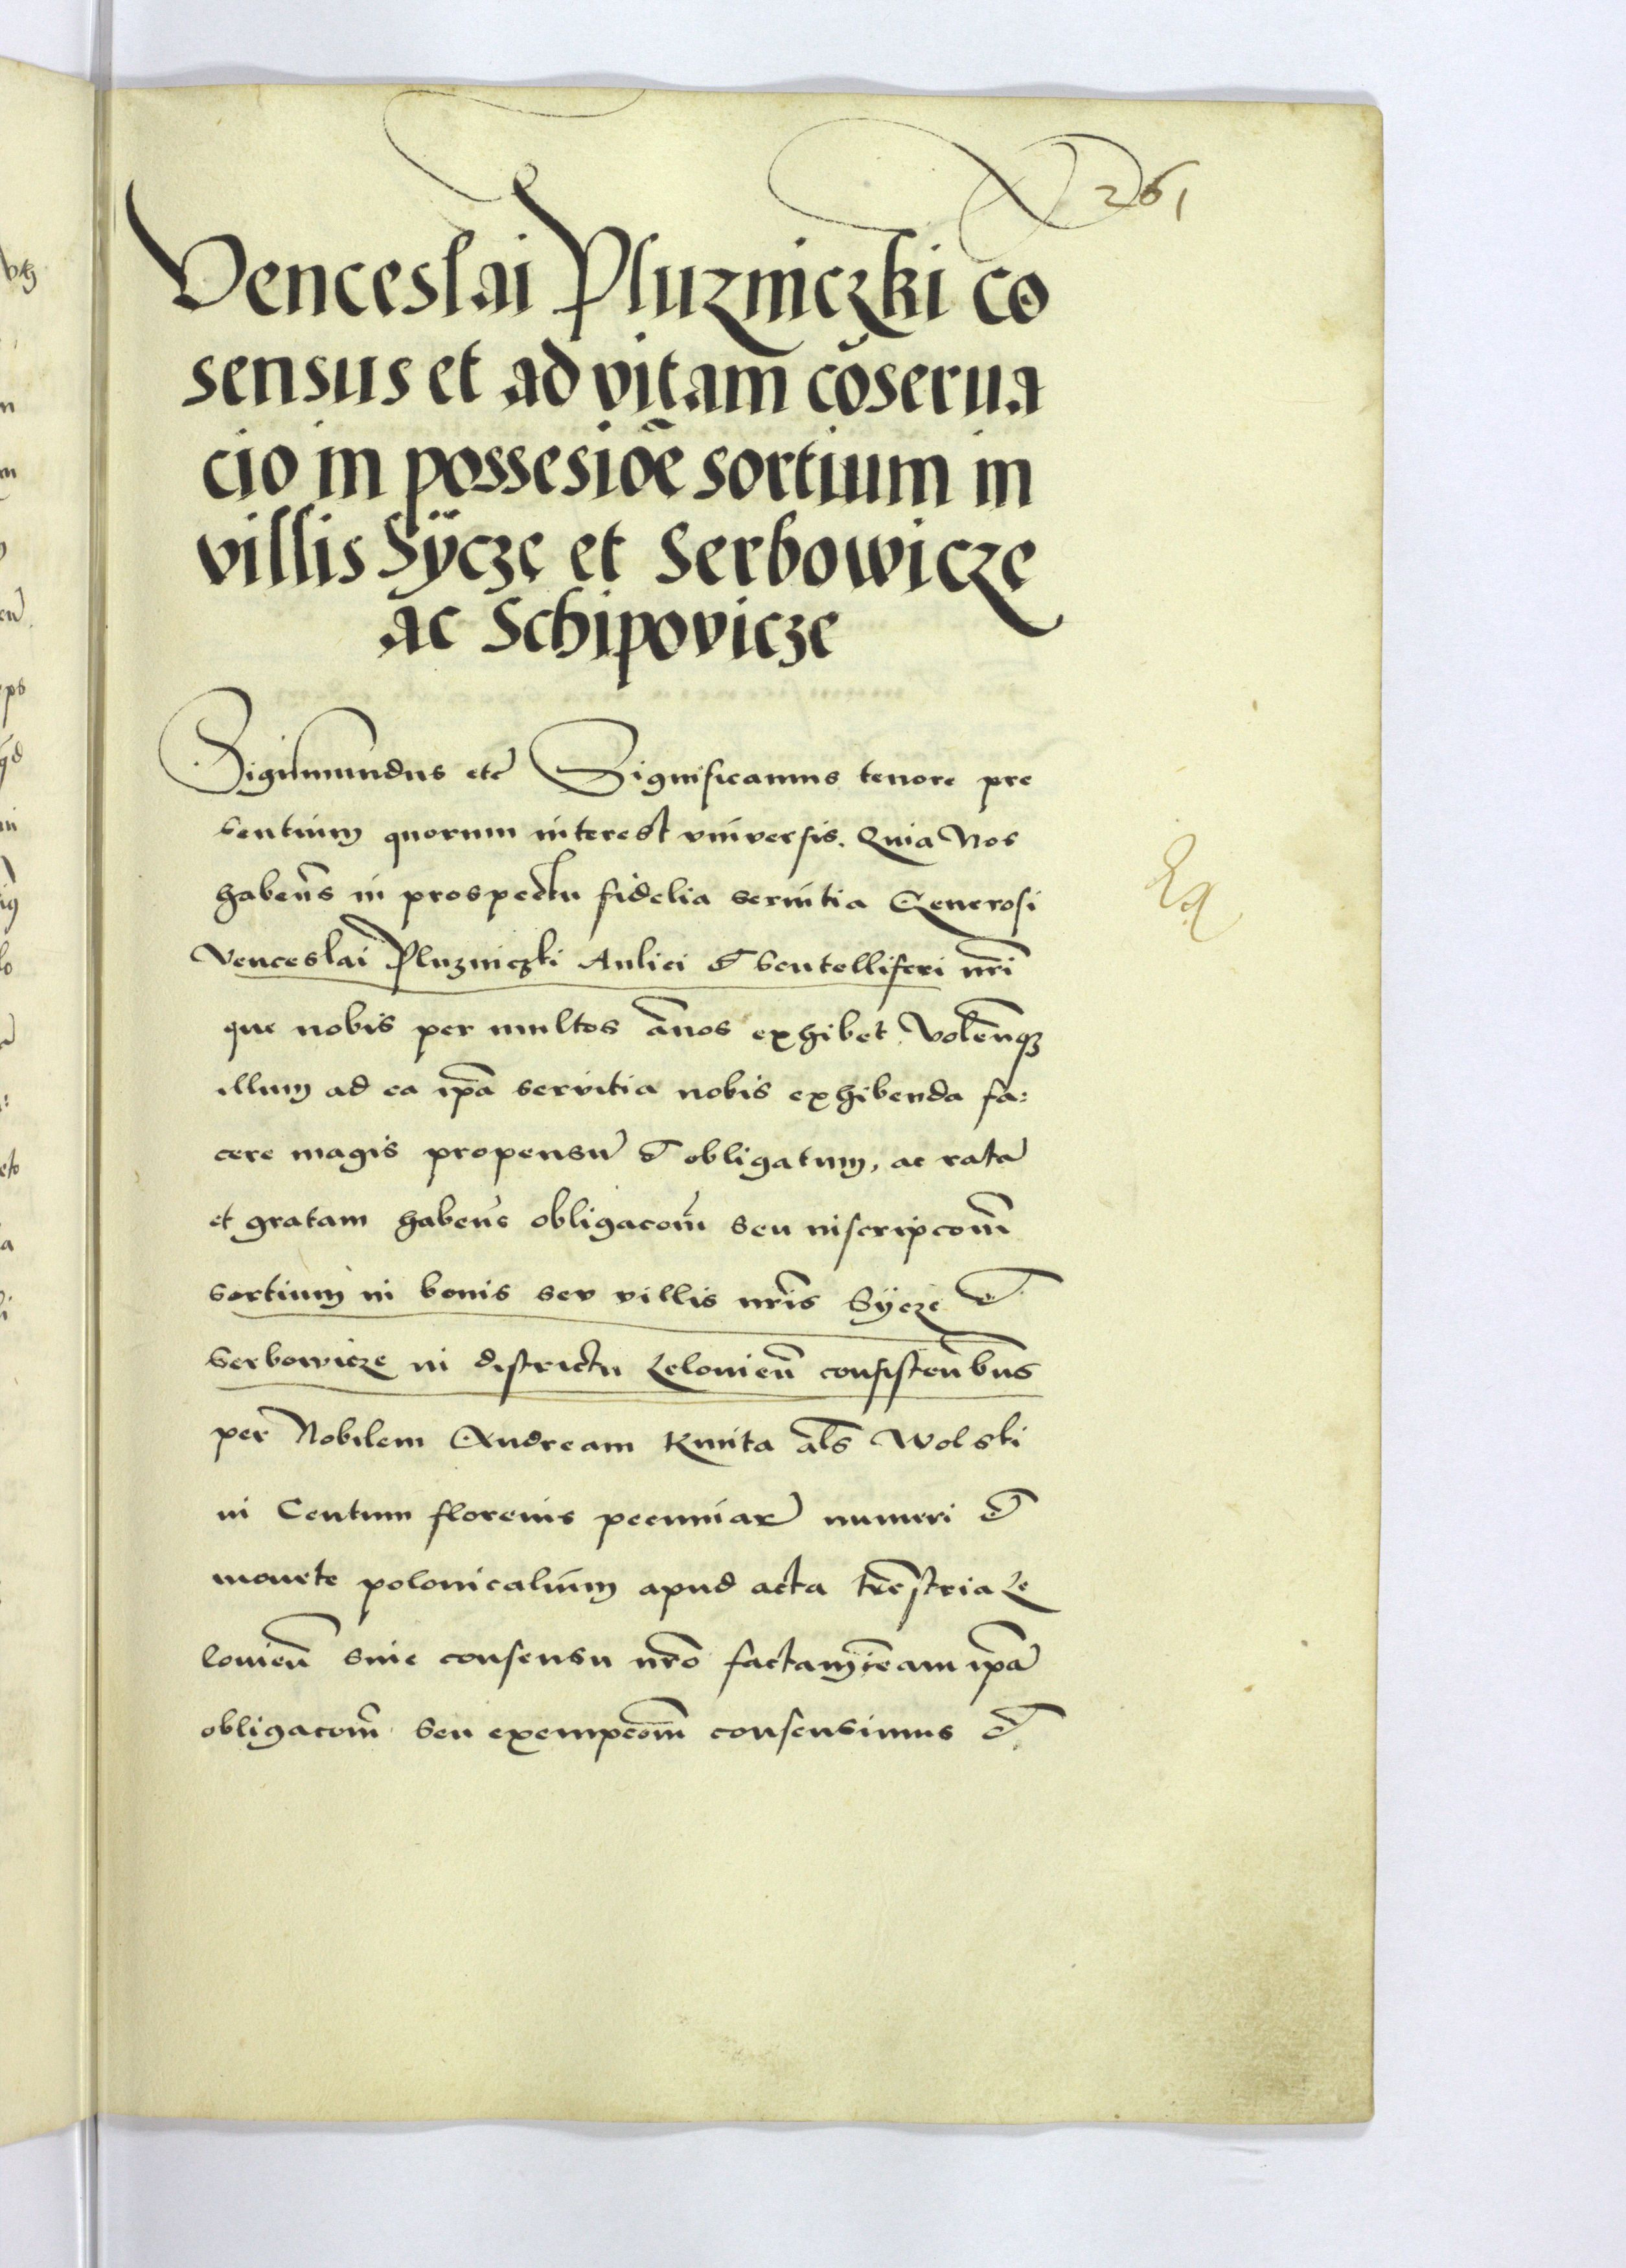 261
Venceslai Pluzniczki co
sensus et ad vitam cōserua
cio in possesiōe sortium in
villis Sÿcze et Serbowicze
ac Schipovicze
Sigismundus etc̄ Significamus tenore pre
sentium quorum interest vniversis. Quia Nos
habeñs in prospectu fidelia servitia Generosi
Venceslai Pluzniczki Aulici et Scutelliferi nr̄i
que nobis per multos ānos exhibet. Volēńqꝫ
illum ad ea ip̄a servitia nobis exhibenda fa:
cere magis propensū et obligatum, ac ratā
et gratam habeñs obligacom̄ seu inscripcom̄
sortium in bonis sev villis nr̄is Sÿcze et
Serbowicze in districtu Leloviēn consisteñbus
per Nobilem Andream Kmita al̄s Wolski
in Centum florenis pecuniar̄ numeri et
monete polonicalium apud acta tr̄estria Le
loviēn sine consensu nr̄o factam, eam ip̄ā
obligacom̄ seu exempcom̄ consensimus et